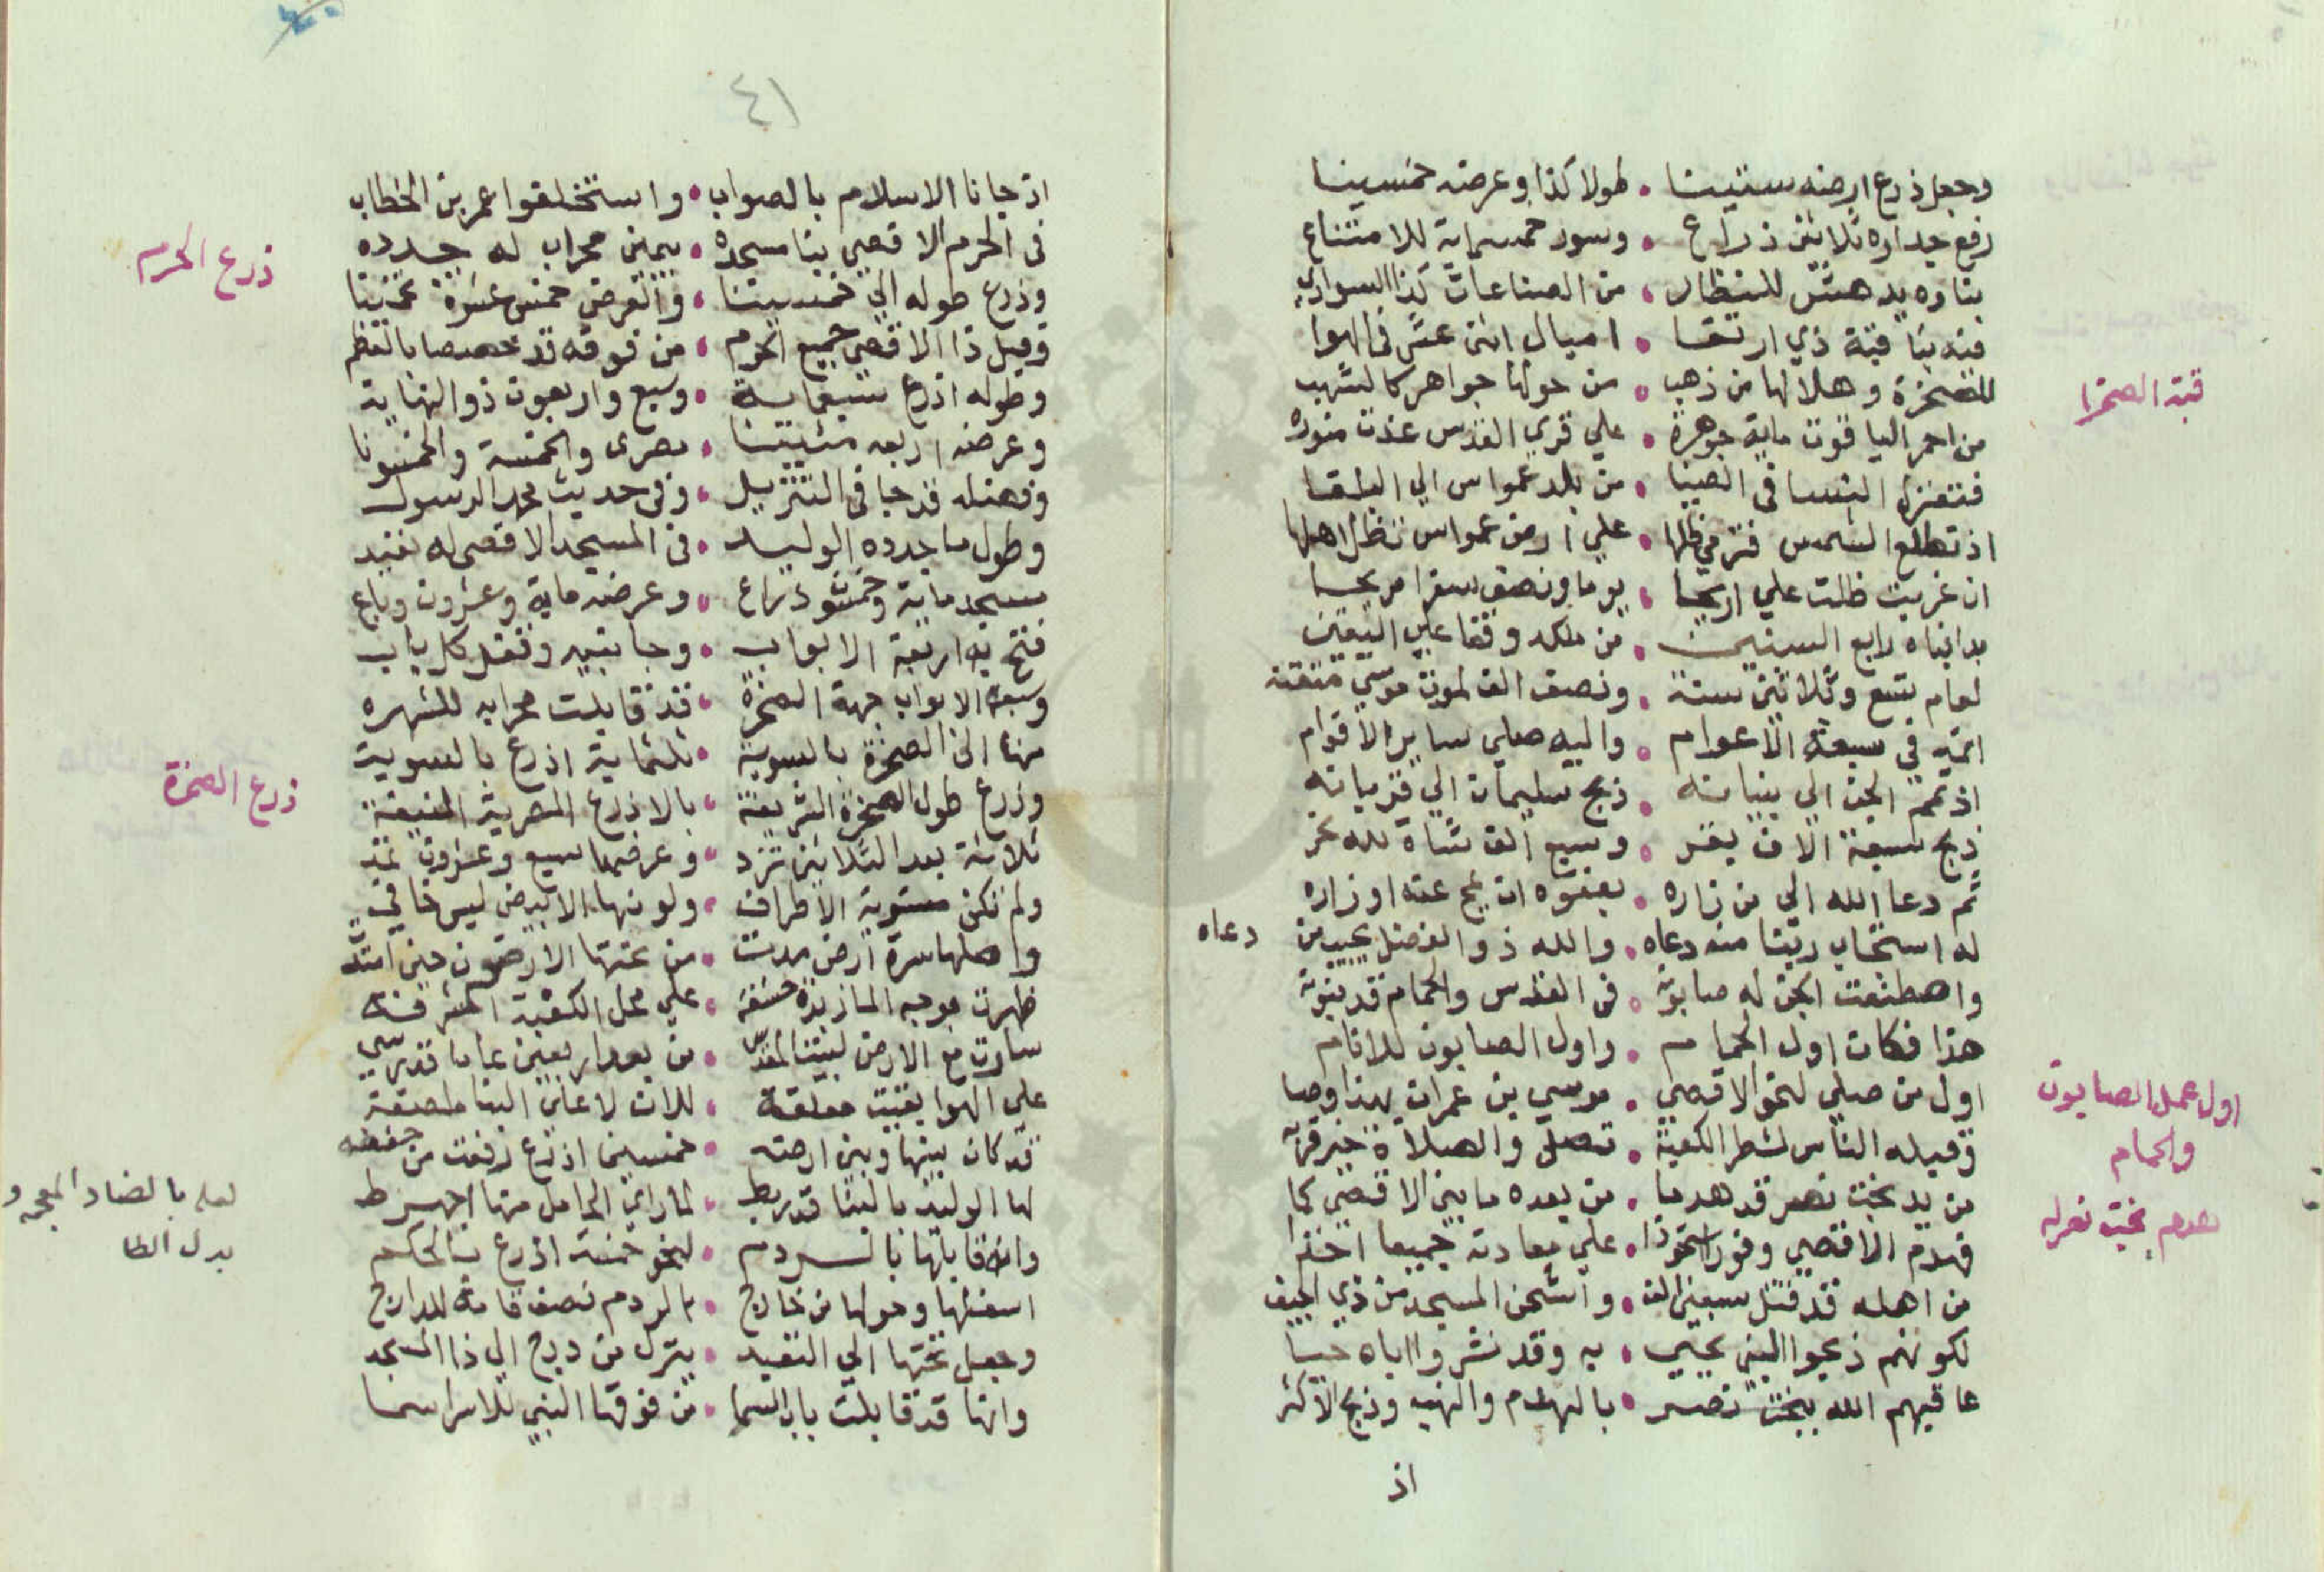 وجعل ذرع ارضه ستينا • طولا كذا وعرضه خمسينا
رفع جداره ثلاثين ذراع • وسور خمسماية للامتناع
بناوه يدهش للنظار • من الصناعات كذا السواري
فيه بنا قبة ذي ارتقا • اميال اثني عشر في الهوا
قبة الصخرا
للصخرة وهلالها من ذهب • من حولها جواهر كالشهب
من احمر الياقوت ماية جوهرة • علي قري القدس غدت منوره
فتغزل النسا في الضيا • من بلد عمواس الي البلقا
اذ تطلع الشمس فترمي ظلها • علي ارض عمواس تظل اهلها
ان غربت ظلت علي اريحا • يوما ونصف سفرا مريحا
بدا بناه رابع السنين • من ملكه وفقا علي اليقين
لعام تسع وثلاثين سنة • ونصف الف لموت موسي متقنه
اتمه في سبعة الاعوام • واليه صلي ساير الاقوام
اذ تمم الجن الي بنيانه • ذبح سليمان الي قربانه
ذبح سبعة الاف بقر • وسبع الف شاة لله نحر
ثم دعا الله الي من زاره • بعفوه ان يمح عنه اوزاره
له استجاب ربنا منه دعاه • والله ذو الفضل يجيب من دعاه
واصطنعت الجن له صابونه • في القدس والحمام قد بنونه
هذا فكان اول الحمام • واول الصابون للانام
اول عمل الصابون
والحمام
اول من صلي لنحو الاقصي • موسي بن عمران بهذا وصا
وقبله الناس لشطر الكعبة • تصل والصلاة خير قربه
من يد بخت نصر قد هدما • من بعده ما بين الاقصي كما
هدم بخت نصر له
فهدم الاقصي وفورا استحوذا • علي معادنه جميعا اخذا
من اهله قد قتل سبعين الف • واشحن المسجد من ذي الجيف
لكونهم ذبحوا النبي يحيي • به وقد نشروا اباه حيا
عاقبهم الله ببخت نصر • بالهدم والنهب وذبح الاكثر
اذ
٤١
اذ جانا الاسلام بالصواب • واستخلفوا عمر بن الخطاب
في الحرم الاقصي بنا مسجده • يمين محراب له جدده
ذرع الحرم
وذرع طوله الي خمسينا • والعرض خمس عشرة تخمينا
وقيل ذا الاقصي جميع الحرم • من فوقه قد خصصا بالعظم
وطوله اذرع سبعماية • وسبع واربعون ذو النهاية
وعرضه اربعه مئينا • بصري والخمسة والخمسونا
وفضله قد جا في التنزيل • وفي حديث محمد الرسول
وطول ما جدده الوليد • في المسجد الاقصي له نفيد
مسجد ماية وخمسون ذراع • وعرضه ماية وعشرون وباع
فتح به اربعة الابواب • وجانبيه وقفل كل باب
وسبعة الابواب جهة الصخرة • قد قابلت محرابه للشهره
منها الي الصخرة بالسوية • ثلثماية اذرع بالسوية
ذرع الصخرة
وذرع طول الصخرة الشريفة • بالاذرع المصرية المنيفة
ثلاثة بعد الثلاثين تزد • وعرضها سبع وعشرون تمد
ولم تكن مستوية الاطراف • ولونها الابيض ليس خافي
واصلها سرة ارض مدت • من تحتها الارضون حين امتدت
ظهرت بموجه الما زبدة خشفه • علي محل الكعبة المشرفه
سارت مع الارض لبيت المقدس • من بعد اربعين عاما قد رسي
علي الهوا بقيت معلقة • للان لا علي البنا ملصقة
قد كان بينها وبين ارضه • خمسين اذرع رفعت من خفضه
لها الوليد بالبنا قد ربط • لما راي الحامل منها اجهرط
لعله بالضاد المعجمه و
بدل الطا
وانه قابلها بالردم • لنحو خمسة اذرع بالحكم
اسفلها وحولها من خارج • بالردم نصف قامة للدارج
وجعل تحتها الي التعبد • ينزل من درج الي ذا المسجد
وانها قد قابلت باب السما • من فوقها النبي للاسرا سما